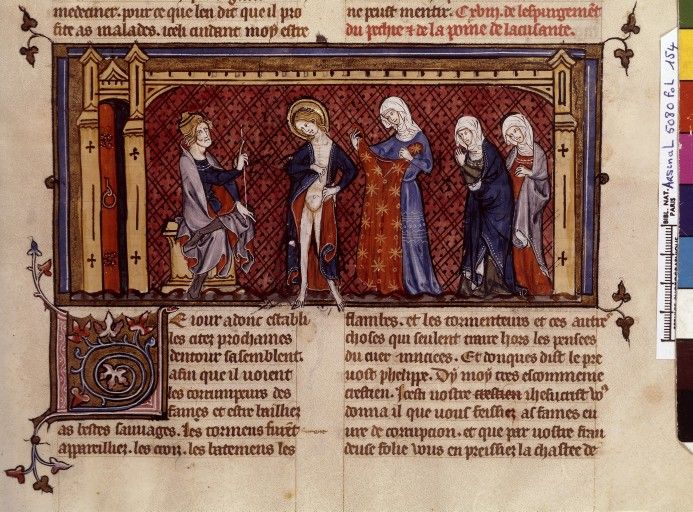 medeciner. pour ce que len dit que il pro
fite as malades. iceli cuidant moy estre
ne peust mentir. C. xviij. de lespurgement
du pechie ⁊ de la poine de lacusante.
E iour adonc establi
les citez prochaines
dentour sasemblent.
afin que il voient
les corrumpeurs des
fames et estre baillier
as bestes sauvages. les tormens furent
appareillier. les croiz. les batemens les
flambes. et les tormenteurs et ces autres
choses qui seulent traire hors les pensees
du cuer muciees. Et donques dist le pre
vost phelippe. Dy moy tres escommenie
crestien. Icest vostre crestien ihesucrist vous
donna il que vous feissiez as fames eu
vre de corrupcion. et que par vostre frau
deuse folie vous en preissiez la chastee de
BIBL. NAT. PARIS
ArsenaL 5080 FoL 154